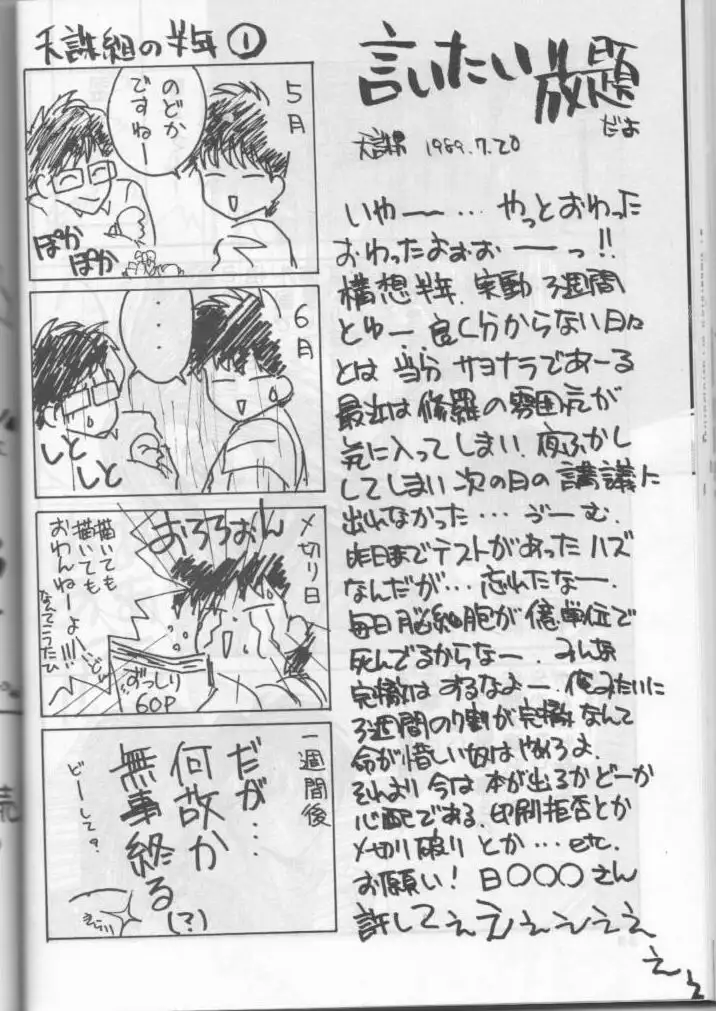 天誅組の半年 ①
5月
のどか
ですねー
ぽか
ぽか
6月
・・・
しと
しと
〆切り日
おろろぉん
描いても
描いても
おわんねーよー!!!!
なんてこったい
ずっしり
60P
一週間後
だが…
何故か
無事終る
(?)
どーして?
言いたい放題
だよ
1989.7.20
いやー…やっとおわった
おわったよぉぉーーっ!!
構想半年、実動3週間
とゆー、良く分からない日々
とは当分サヨナラであーる
最近は修羅の雰囲気が
気に入ってしまい、夜ふかし
してしまい次の日の講議に
出れなかった…ゔーむ、
昨日までテストがあったハズ
なんだが…忘れたなー、
毎日脳細胞が億単位で
死んでるからなー、みんな
完徹はするなよー、俺みたいに
3週間の7割が完徹なんて
命が惜しい奴はやめろよ、
それより今は本が出るかどーか
心配である、印刷拒否とか
〆切り破りとか…etc.
お願い!日〇〇〇さん
許してぇえぇぇえぇ
ぇぇ